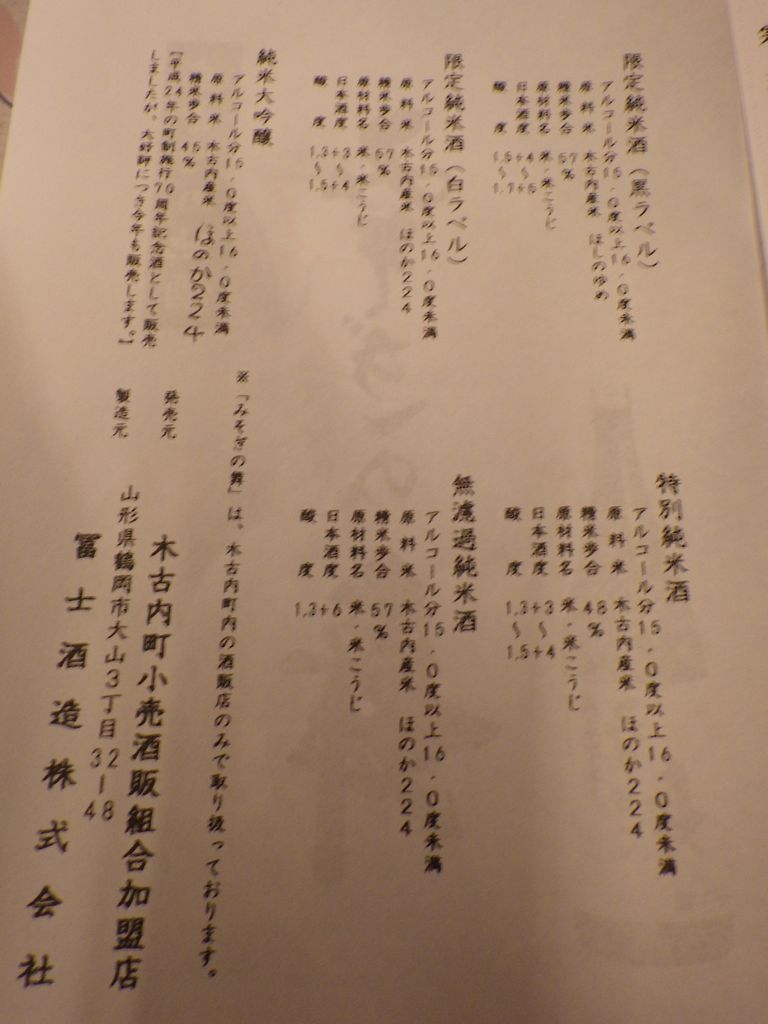 限定純米酒（黒ラベル）
アルコール分15.0度以上16.0度未満
原料米 木古内産米 ほしのゆめ
精米歩合 57%
原材料名 米・米こうじ
日本酒度 +4〜+5
酸度 1.5〜1.7
特別純米酒
アルコール分15.0度以上16.0度未満
原料米 木古内産米 ほのか224
精米歩合 48%
原材料名 米・米こうじ
日本酒度 +3〜+4
酸度 1.3〜1.5
限定純米酒（白ラベル）
アルコール分15.0度以上16.0度未満
原料米 木古内産米 ほのか224
精米歩合 57%
原材料名 米・米こうじ
日本酒度 +3〜+4
酸度 1.3〜1.5
無濾過純米酒
アルコール分15.0度以上16.0度未満
原料米 木古内産米 ほのか224
精米歩合 57%
原材料名 米・米こうじ
日本酒度 +6
酸度 1.3
純米大吟醸
アルコール分15.0度以上16.0度未満
原料米 木古内産米 ほのか224
精米歩合 45%
【平成24年の町制施行70周年記念酒として販売
しましたが、大好評につき今年も販売します。】
※「みそぎの舞」は、木古内町内の酒販店のみで取り扱っております。
発売元 木古内町小売酒販組合加盟店
製造元 山形県鶴岡市大山3丁目32-48
冨士酒造株式会社